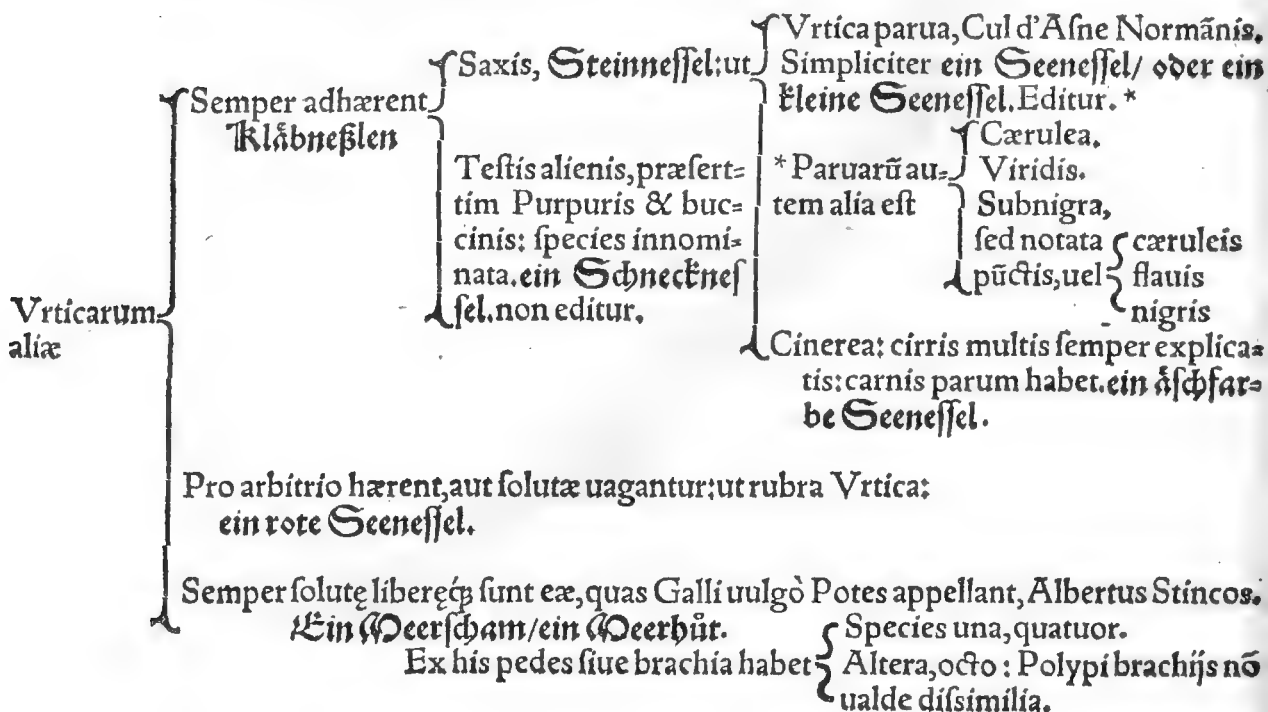 Vrticarum
aliæ
Semper adhærent
Klåbneßlen
Saxis, Steinneſſel: ut
Vrtica parua, Cul d'Aſne Normãnis.
Simpliciter ein Seeneſſel/ oder ein
kleine Seeneſſel. Editur. *
* Paruarũ au=
tem alia eſt
Cærulea.
Viridis.
Subnigra,
ſed notata
pũctis, uel
cæruleis
flauis
nigris
Cinerea: cirris multis ſemper explica=
tis: carnis parum habet. ein åſchfar=
be Seeneſſel.
Teſtis alienis, præſert=
tim Purpuris & buc=
cinis: ſpecies innomi=
nata. ein Schneckneſ
ſel. non editur.
Pro arbitrio hærent, aut ſolutæ uagantur: ut rubra Vrtica:
ein rote Seeneſſel.
Semper ſolutę liberęꝗ́ ſunt eæ, quas Galli uulgò Potes appellant, Albertus Stincos.
Ein Meerſcham/ein Meerhůt.
Ex his pedes ſiue brachia habet
Species una, quatuor.
Altera, octo: Polypi brachijs nõ
ualde diſsimilia.